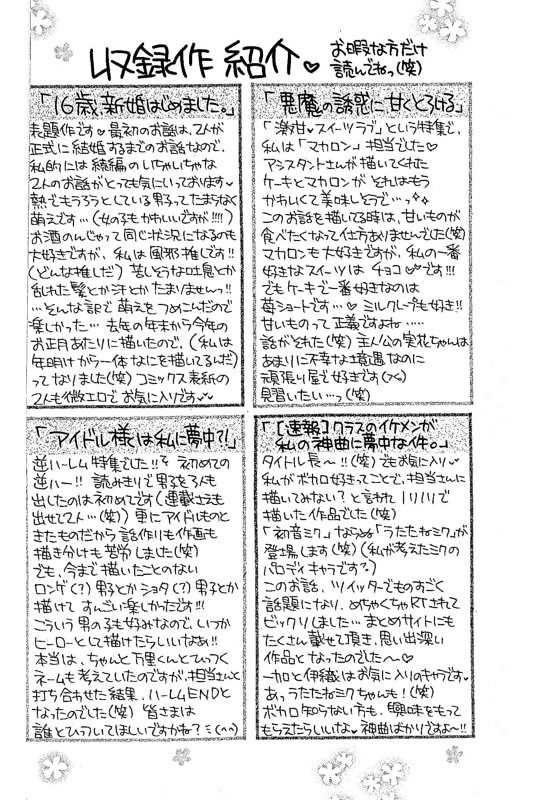 収録作 紹介♡
お暇な方だけ
読んでねっ(笑)
「16歳、新婚はじめました。」
表題作です♡最初のお話は、2人が
正式に結婚するまでのお話なので、
私的には続編のいちゃいちゃな
2人のお話がとっても気にいっております♡
熱でもうろうとしている男子ってたまらなく
萌えです…(女の子もかわいいですが!!!!)
お酒のんじゃって同じ状況になるのも
大好きですが、私は風邪推しです!!
(どんな推しだ) 苦しそうな吐息とか
乱れた髪とか汗とかたまりませんっ!!
…そんな訳で萌えをつめこんだので
楽しかった… 去年の年末から今年の
お正月あたりに描いたので、(私は
年明けから一体なにを描いてるんだ)
ってなりました(笑) コミックス表紙の
2人も微エロでお気に入りです♡
「悪魔の誘惑に甘くとろける」
「激甘♡スイーツラブ」という特集で、
私は「マカロン」担当でした♡
アシスタントさんが描いてくれた
ケーキとマカロンが それはもう
かわいくて美味しそうで…
このお話を描いてる時は、甘いものが
食べたくなって仕方ありませんでした(笑)
マカロンも大好きですが、私の一番
好きなスイーツは チョコ♡です!!!
でもケーキで一番好きなのは
苺ショートです…♡ ミルクレープも好き!!
甘いものって正義ですよね……
話がそれた(笑) 主人公の実花ちゃんは
あまりに不幸な境遇なのに
頑張り屋で好きです
見習いたい…っ(笑)
「アイドル様は私に夢中?!」
逆ハーレム特集でした!! 初めての
逆ハー!! 読みきりで男を3人も
出したのは初めてです(連載さえも
出せて2人…(笑)) 更にアイドルものと
きたものだから話作りも作画も
描き分けも苦労しました(笑)
でも、今まで描いたことのない
ロンゲ(?)男子とかショタ(?)男子とか
描けて すんごい楽しかったです!!!
こういう男の子も好みなので、いつか
ヒーローとして描けたらいいなぁ!!
本当は、ちゃんと万里くんとくっつく
ネームも考えていたのですが、担当さんと
打ち合わせた結果、ハーレムENDと
なったのでした(笑) 皆さまは
誰とくっついてほしいですかね?
「[速報]クラスのイケメンが
私の神曲に夢中な件。」
タイトル長〜!!(笑) でもお気に入り♡
私がボカロ好きってことで、担当さんに
描いてみない?と言われ ノリノリで
描いた作品でした(笑)
「初音ミク」ならぬ「うたたねミク」が
登場します(笑)(私が考えたミクの
パロディキャラです?)
このお話、ツイッターでものすごく
話題になり、めちゃくちゃRTされて
ビックリしました… まとめサイトにも
たくさん載せて頂き、思い出深い
作品となったのでした〜♡
一加と伊織はお気に入りのキャラです♡
あっ、うたたねミクちゃんも!(笑)
ボカロ知らない方も、興味をもって
もらえたらいいな♡ 神曲ばかりですよ〜!!